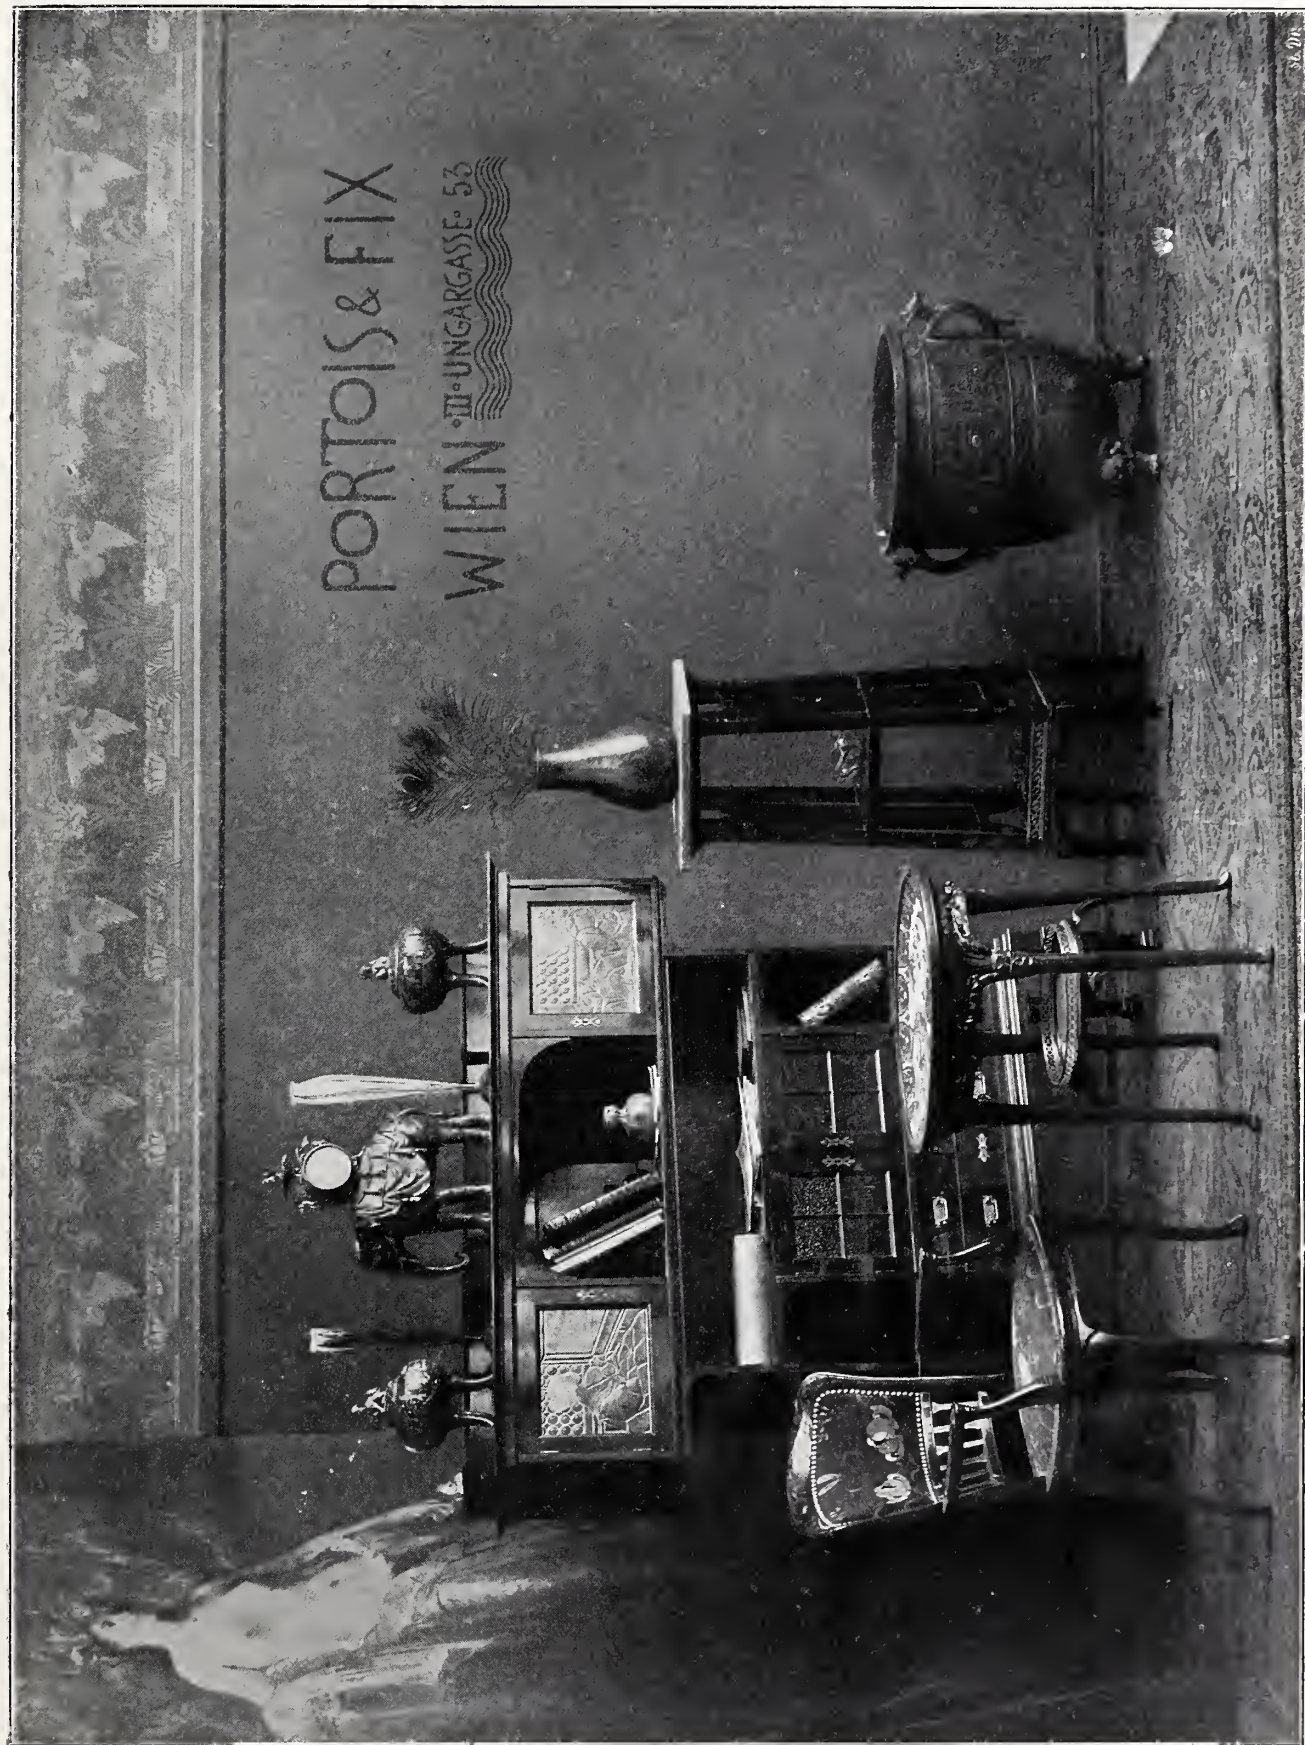 PORTOIS & FIX
WIEN · III · UNGARGASSE · 53